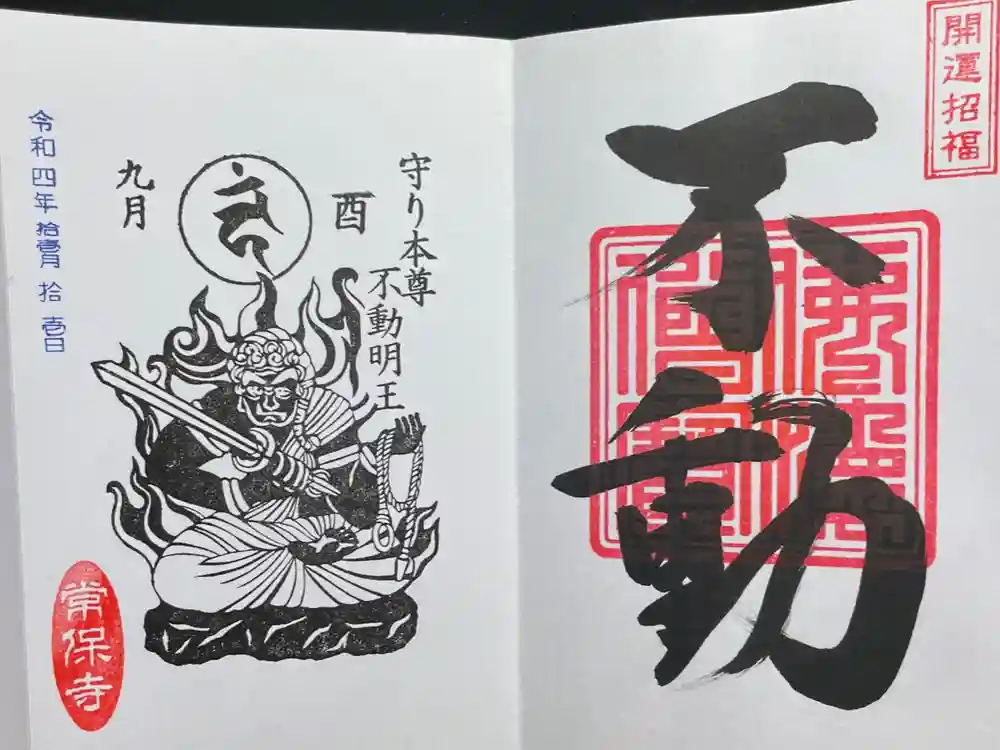 開運招福
不動
守り本尊
不動明王
酉
九月
令和四年拾壹月拾壱日
常保寺